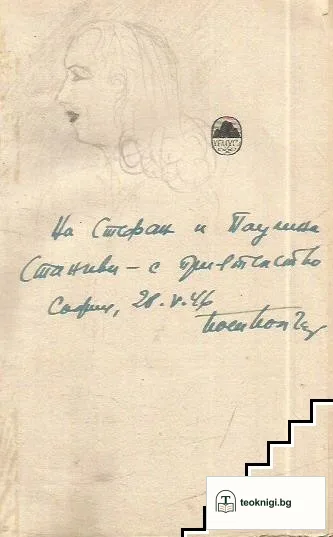 ХЕМУСЪ
На Стефан и Паулина
Станчеви – с приятелство
София, 28.V.46
teoknigi.bg